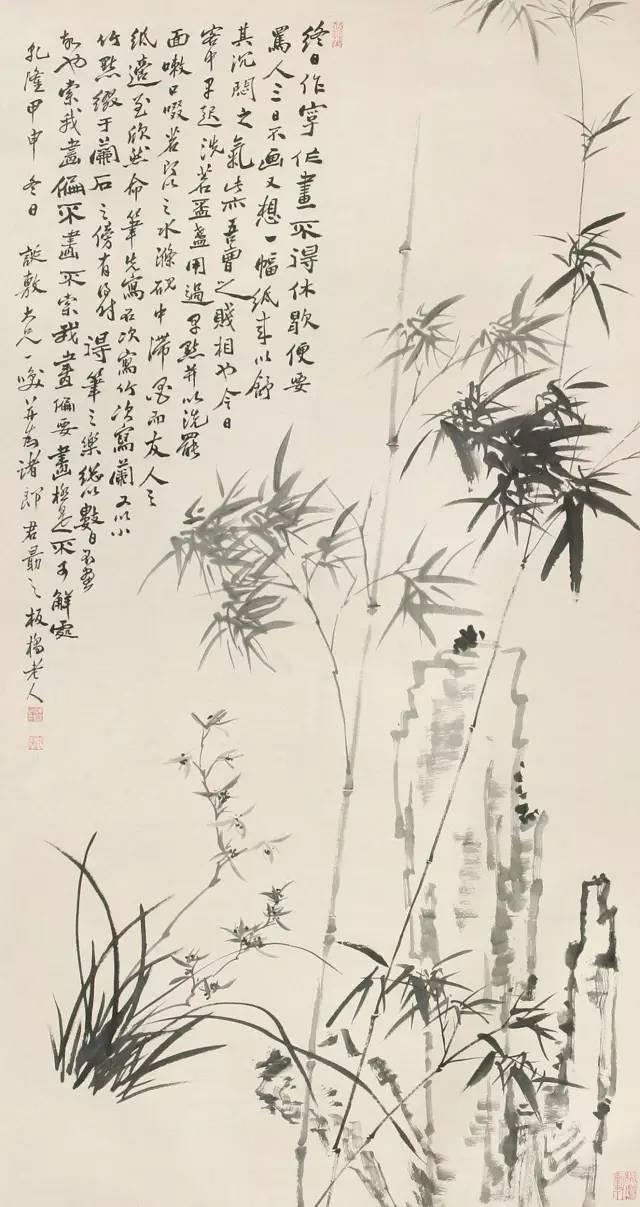 終日作字作畫不得休歇便要
罵人三日不画又想一幅紙來以舒
其沉悶之氣此亦吾曹之賤相也今日
客中早起洗茗盃盞用過早點并以洗罷
面嗽口啜茗之水滌硯中滯墨而友人之
紙適至欣然命筆先寫石次寫竹次寫蘭又以小
竹點綴于蘭石之傍有得筆之樂總以數日不畫
故也索我畫偏不畫不索我畫偏要畫極是不可解處
乾隆甲申冬日 誕敷大兄一笑并為諸郎君勗之 板橋老人